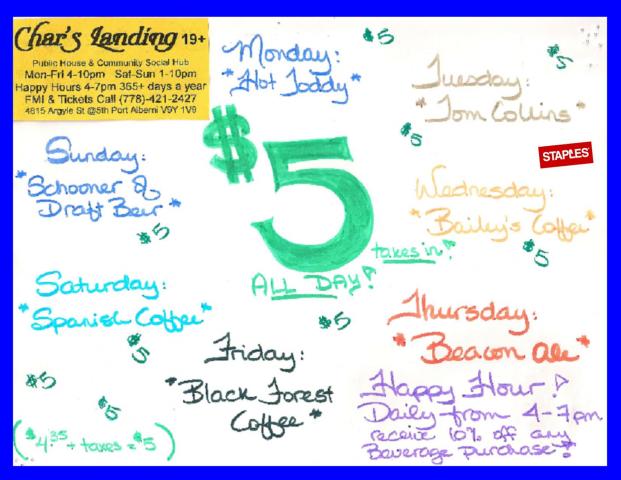 Char's Landing 19+
Public House & Community Social Hub
Mon-Fri 4-10pm Sat-Sun 1-10pm
Happy Hours 4-7pm 355+ days a year
FMI & Tickets Call (778)-421-2427
4815 Argyle St @5th Port Alberni V9Y 1V9
Monday:
"Hot Toddy"
$5
Tuesday:
"Tom Collins"
$5
$5
STAPLES
Sunday:
"Schooner of
Draft Beer"
$5
$5
ALL DAY!
taxes in!
Wednesday:
"Bailey's Coffee"
$5
Saturday:
"Spanish Coffee"
$5
$5
$5
Friday:
"Black Forest
Coffee"
$5
Thursday:
"Beacon Ale"
Happy Hour!
Daily from 4-7pm
receive 10% off any
Beverage purchase!
($4.35 + taxes = $5)